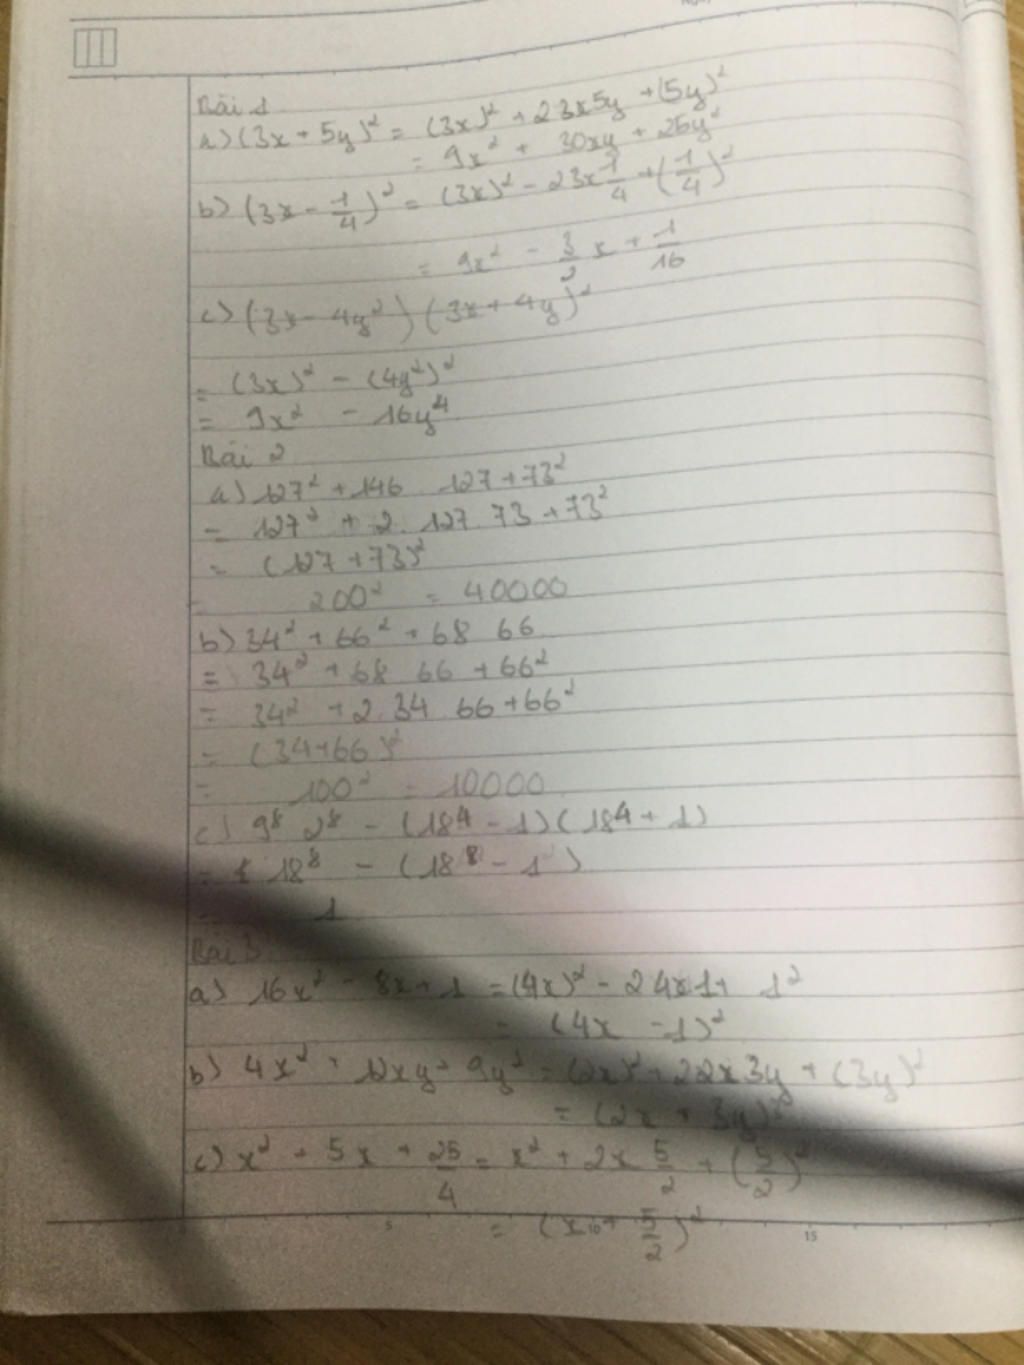 Bài 1
a) (3x + 5y)² = (3x)² + 2 3x 5y + (5y)²
= 9x² + 30xy + 25y²
b) (3x - 1/4)² = (3x)² - 2 3x 1/4 + (1/4)²
= 9x² - 3/2 x + 1/16
c) (3x - 4y²) (3x + 4y)²
= (3x)² - (4y²)²
= 9x² - 16y⁴
Bài 2
a) 127² + 146 . 127 + 73²
= 127² + 2 . 127 . 73 + 73²
= (127 + 73)²
= 200² = 40000
b) 34² + 66² + 68 66
= 34² + 68 66 + 66²
= 34² + 2 . 34 66 + 66²
= (34 + 66)²
= 100² = 10000
c) 9⁸ 2⁸ - (18⁴ - 1) (18⁴ + 1)
= 18⁸ - (18⁸ - 1)
= 1
Bài 3
a) 16x² - 8x + 1 = (4x)² - 2 4x 1 + 1²
= (4x - 1)²
b) 4x² + 12xy + 9y² = (2x)² + 2 2x 3y + (3y)²
= (2x + 3y)²
c) x² + 5x + 25/4 = x² + 2x 5/2 + (5/2)²
= (x + 5/2)²
5 10 15